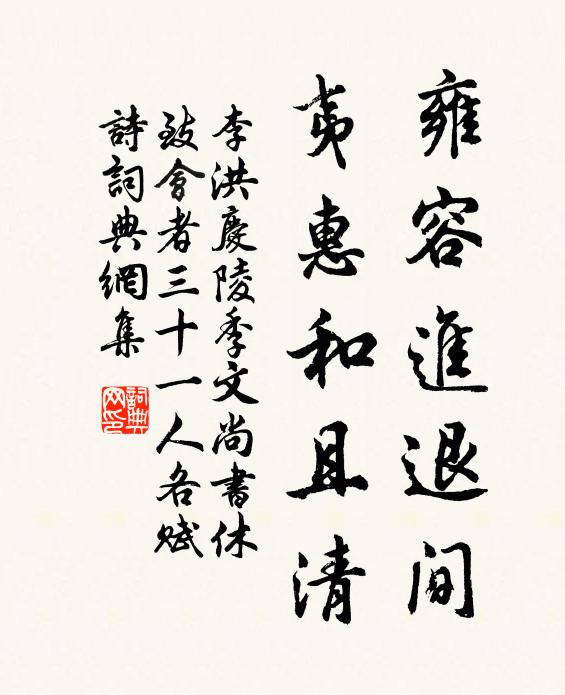 雍容進退间
夷惠和且清
李洪慶陵季文尚書休
致會者三十一人各赋
詩詞典網集
詞典
网印